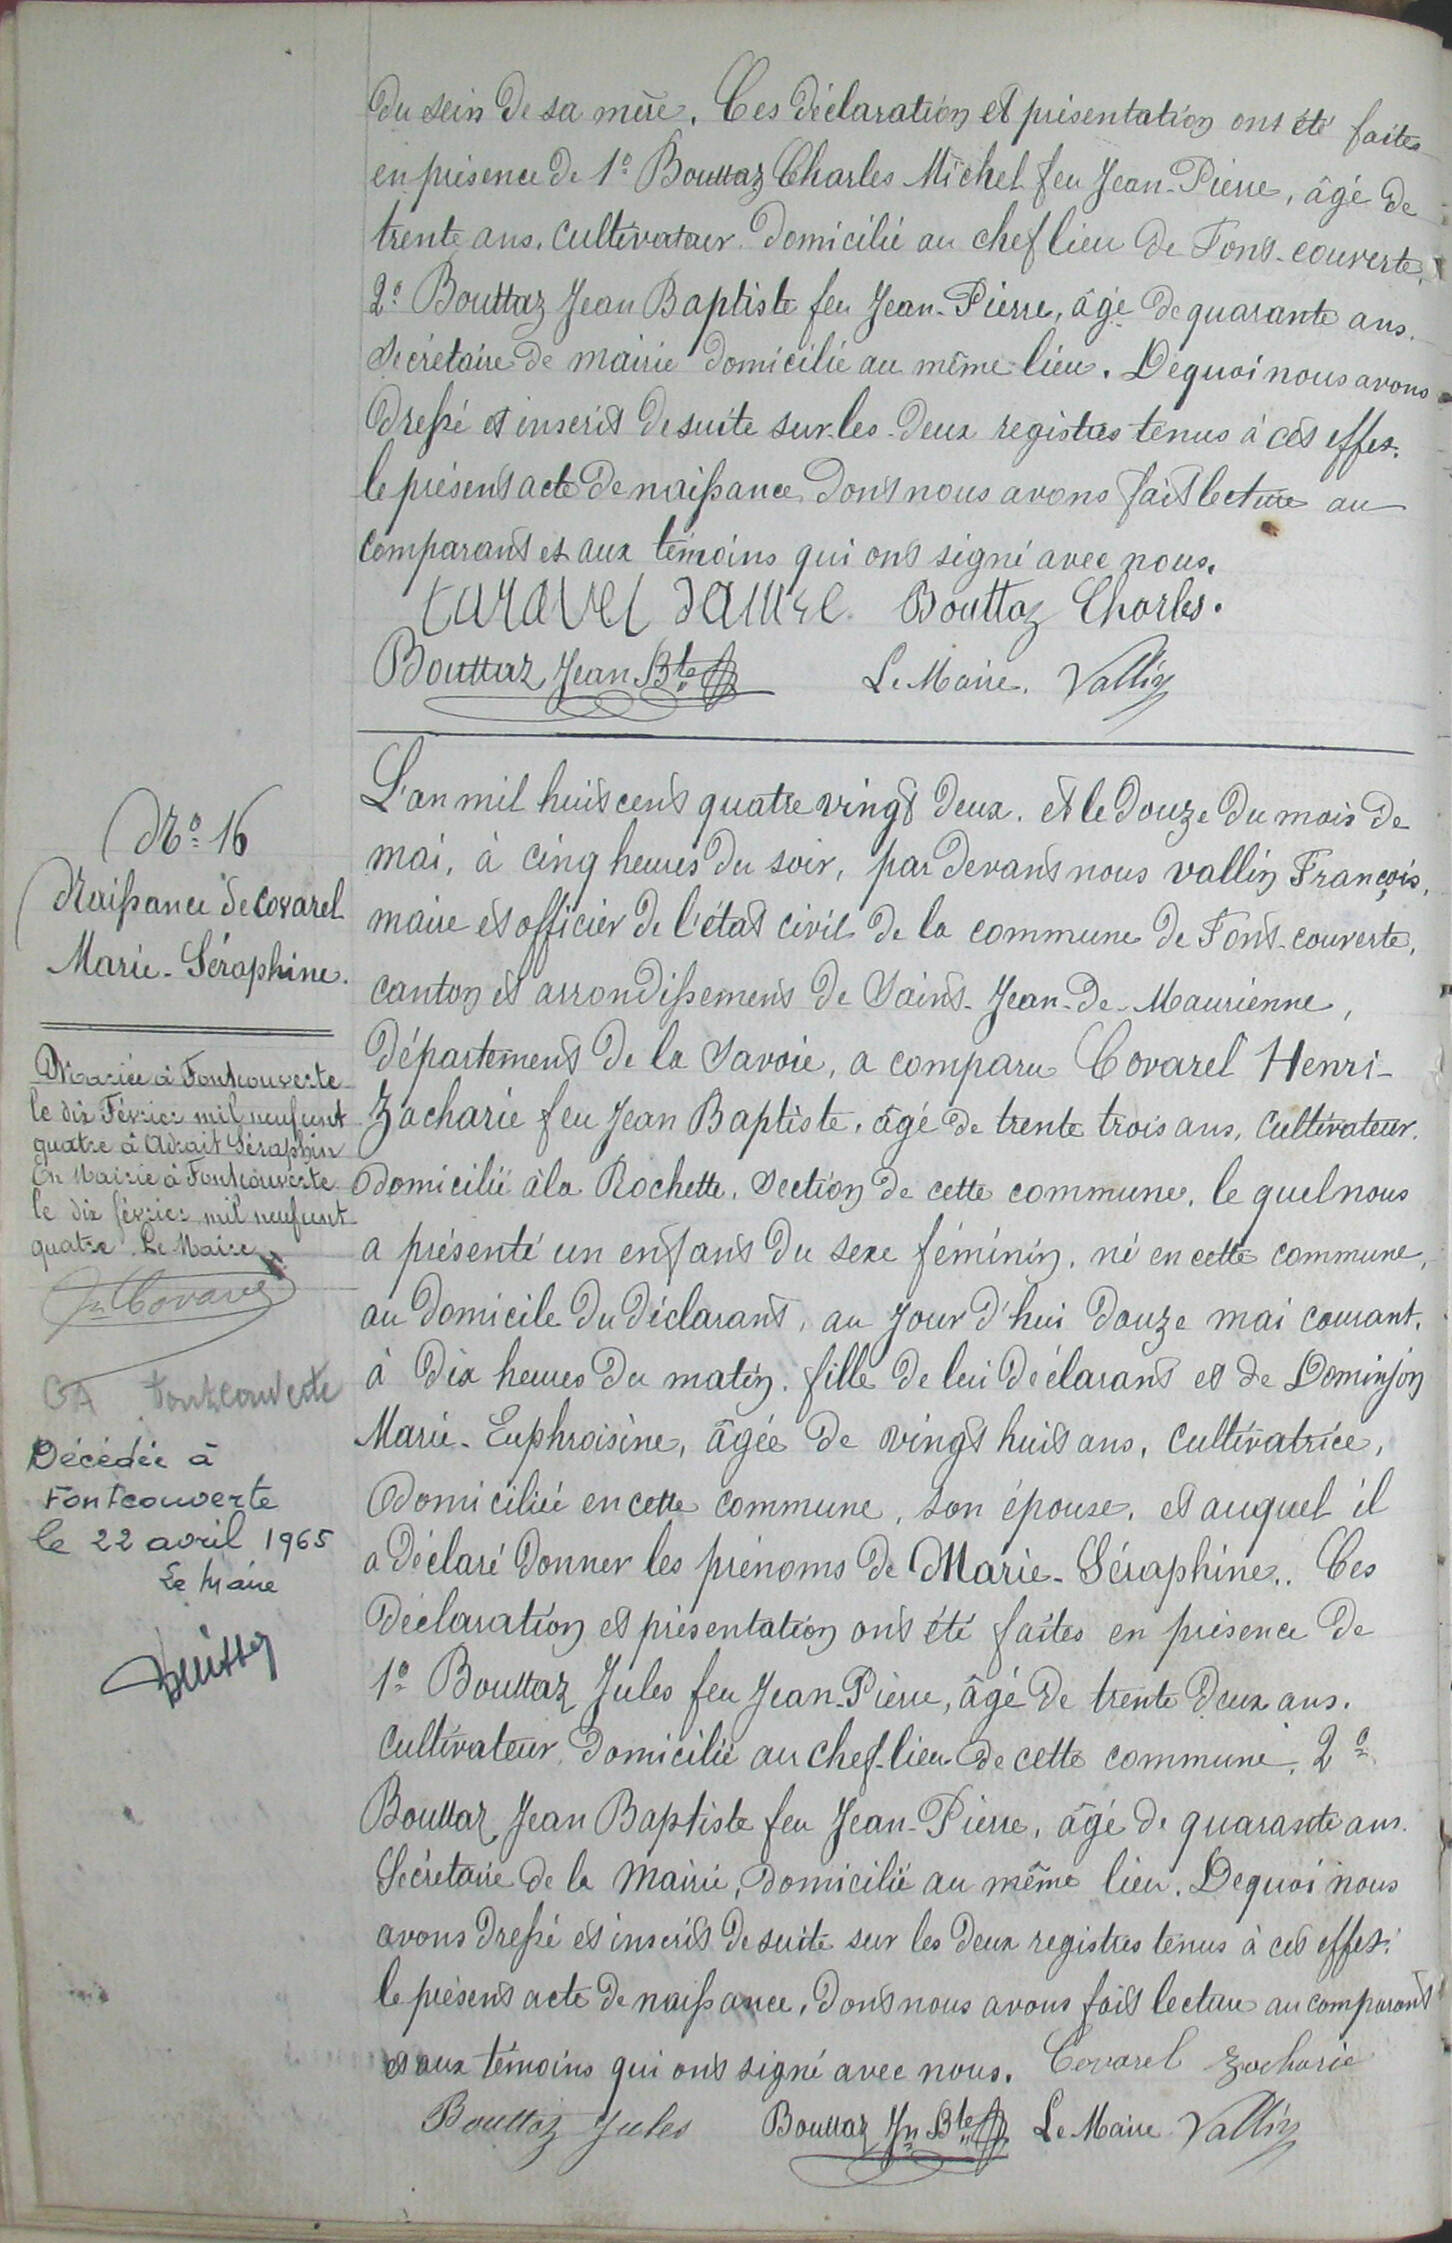 du sein de sa mère. Ces déclaration et présentation ont été faites
en présence de 1º Bouttaz Charles Michel feu Jean-Pierre, âgé de
trente ans, cultivateur domicilié au chef lieu de Font-couverte,
2º Bouttaz Jean Baptiste feu Jean-Pierre, âgé de quarante ans.
secrétaire de mairie domicilié au même lieu. Dequoi nous avons
dressé et inscrit desuite sur les deux registres tenus à cet effet.
le présent acte de naissance dont nous avons fait lecture au
comparant et aux témoins qui ont signé avec nous.
Bouttaz Charles.
Bouttaz Jean Bte
Le Maire. Vallin
Nº 16
Naissance de Covarel
Marie-Séraphine.
Mariée à Fontcouverte
le dix Février mil neuf cent
quatre à Adrait Séraphin
En Mairie à Fontcouverte
le dix février mil neuf cent
quatre. Le Maire
Jn Covarel
Fontcouverte
Décédée à
Fontcouverte
le 22 avril 1965
Le Maire
L'an mil huit cent quatre vingt deux. et le douze du mois de
mai, à cinq heures du soir, par devant nous vallin François,
maire et officier de l'état civil de la commune de Font-couverte,
canton et arrondissement de Saint-Jean-de-Maurienne,
département de la Savoie, a comparu Covarel Henri-
Zacharie feu Jean Baptiste, âgé de trente trois ans, cultivateur.
domicilié à la Rochette, Section de cette commune, le quel nous
a présenté un enfant du sexe féminin, né en cette commune,
au domicile du déclarant, au jour d'hui douze mai courant,
à dix heures du matin. fille de lui déclarant et de Dominjon
Marie-Euphroisine, âgée de vingt huit ans, cultivatrice,
domiciliée en cette commune, son épouse, et auquel il
a déclaré donner les prénoms de Marie-Séraphine.. Ces
déclaration et présentation ont été faites en présence de
1º Bouttaz Jules feu Jean-Pierre, âgé de trente deux ans.
cultivateur domicilié au chef-lieu de cette commune. 2º
Bouttaz Jean Baptiste feu Jean-Pierre, âgé de quarante ans.
Secrétaire de la Mairie, domicilié au même lieu. Dequoi nous
avons dressé et inscrit desuite sur les deux registres tenus à cet effet.
le présent acte de naissance, dont nous avons fait lecture au comparant
et aux témoins qui ont signé avec nous. Covarel Zacharie
Bouttaz Jules Bouttaz Jn Bte Le Maire Vallin